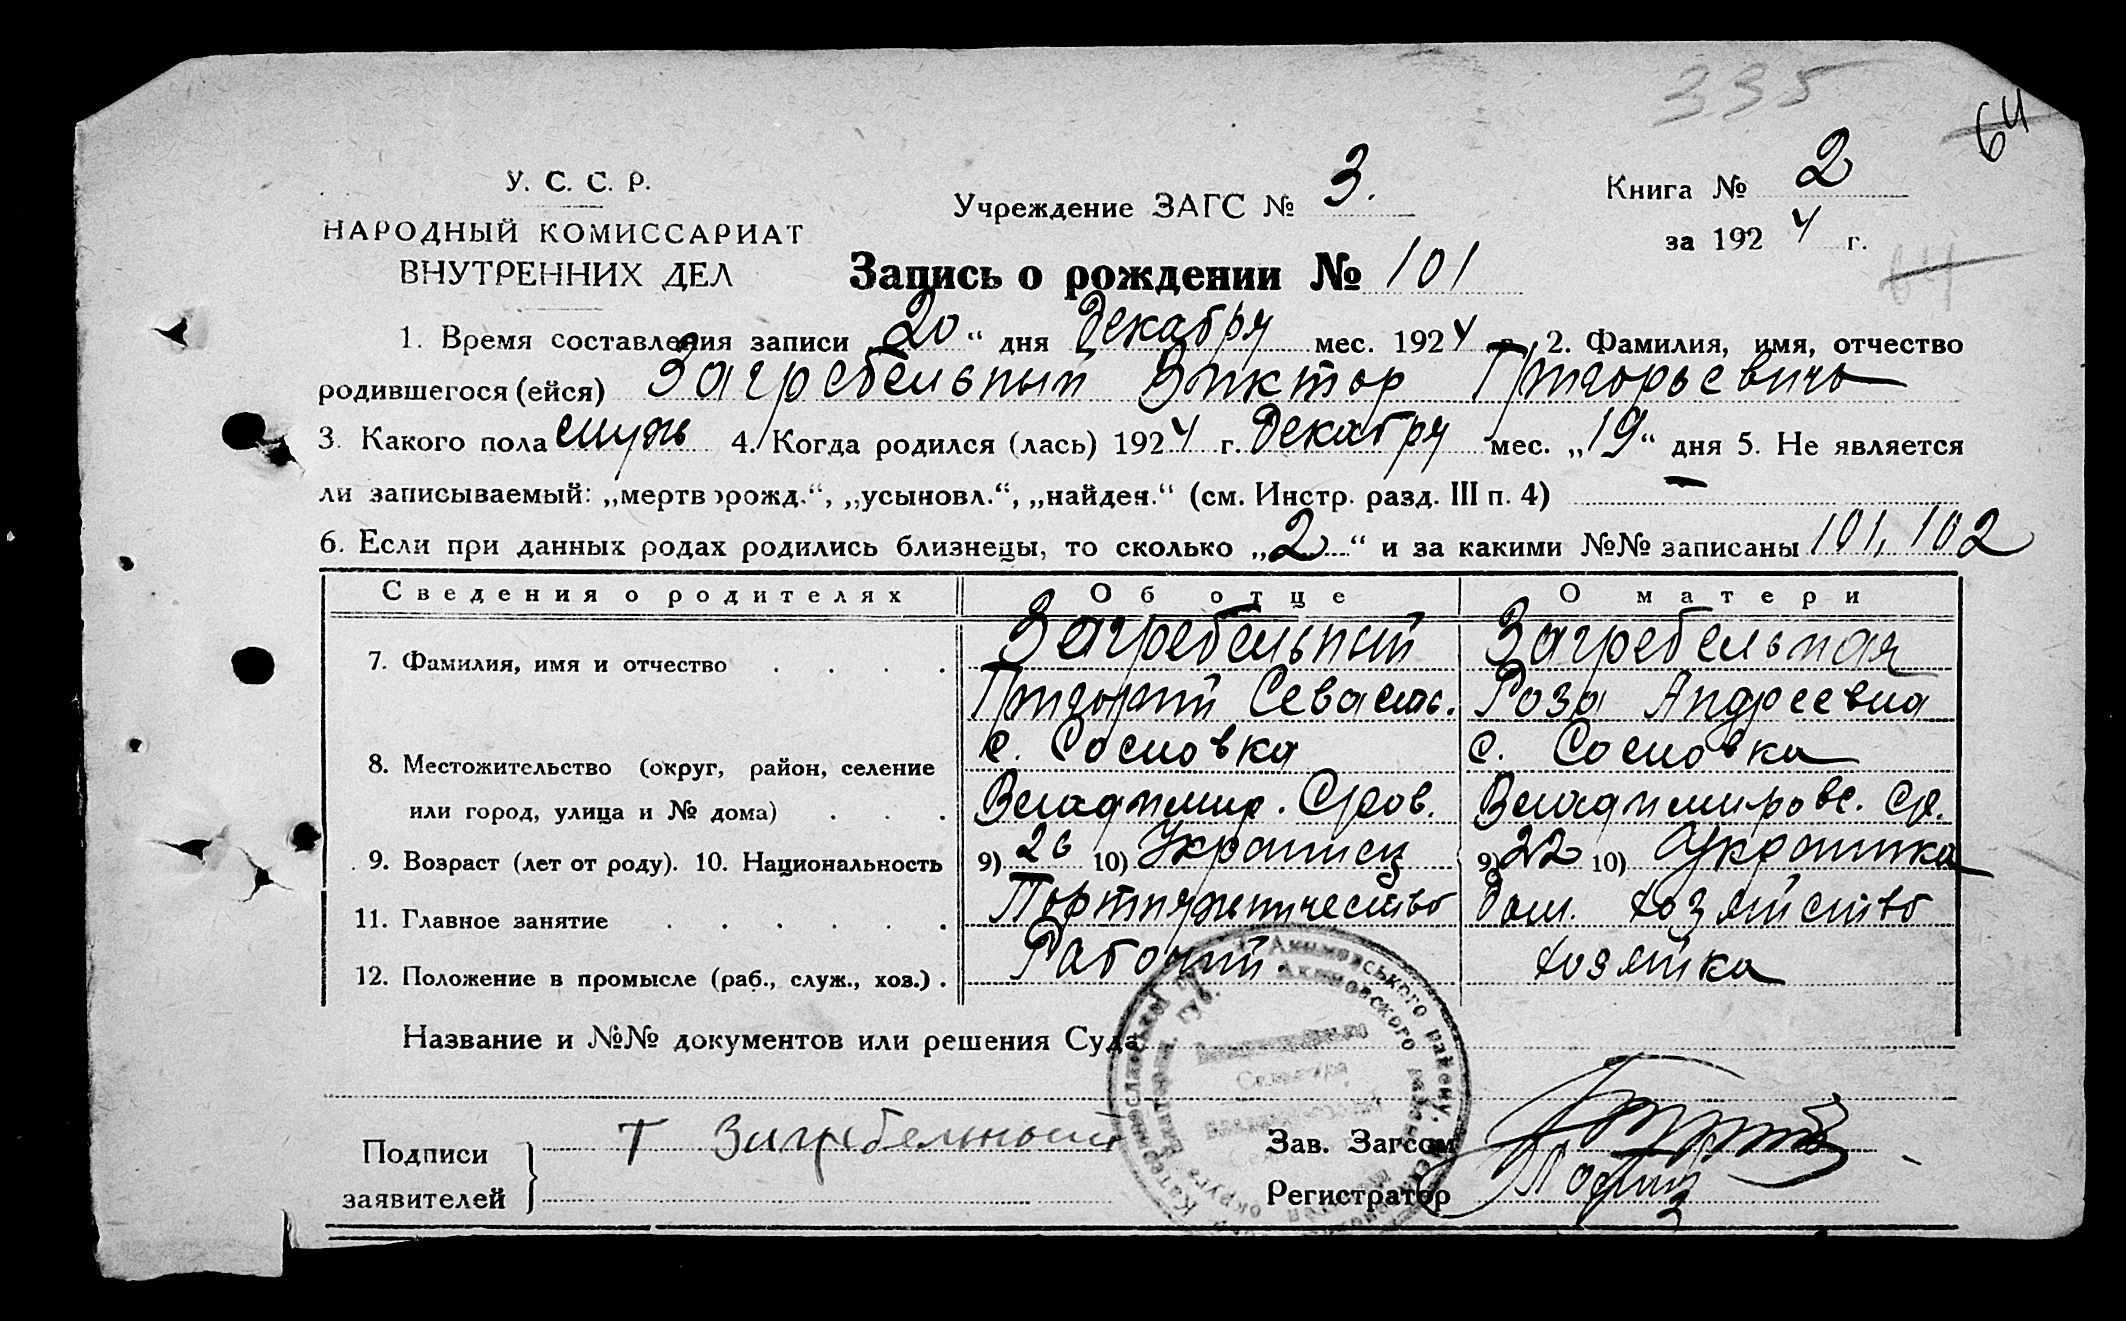 335
64
У. С. С. Р.
НАРОДНЫЙ КОМИССАРИАТ
ВНУТРЕННИХ ДЕЛ
Учреждение ЗАГС № 3.
Книга № 2
за 1924 г.
64
Запись о рождении № 101
1. Время составления записи 20 “ дня Декабря мес. 1924 г., 2. Фамилия, имя, отчество
родившегося (ейся) Загребельный Виктор Григорьевичъ
3. Какого пола муж 4. Когда родился (лась) 1924 г. Декабря мес. „19“ дня 5. Не является
ли записываемый: „мертворожд.“, „усыновл.“, „найден.“ (см. Инстр. разд. III п. 4) —
6. Если при данных родах родились близнецы, то сколько „2“ и за какими №№ записаны 101, 102
Сведения о родителях Об отце О матери
7. Фамилия, имя и отчество Загребельный Загребельная
Григорий Севаст. Роза Андреевна
с. Сосновка с. Сосновка
8. Местожительство (округ, район, селение
или город, улица и № дома) Владимир. Владимировс.
9. Возраст (лет от роду). 10. Национальность 9) 26 10) Украинец 9) 22 10) Украинка
11. Главное занятие Портняжничество дом. хозяйство
12. Положение в промысле (раб., служ., хоз.) Рабочий. хозяйка
Название и №№ документов или решения Суда
Подписи
заявителей
Г Загребельный
Зав. Загсом
Регистратор
Акимовського району
Акимовского района